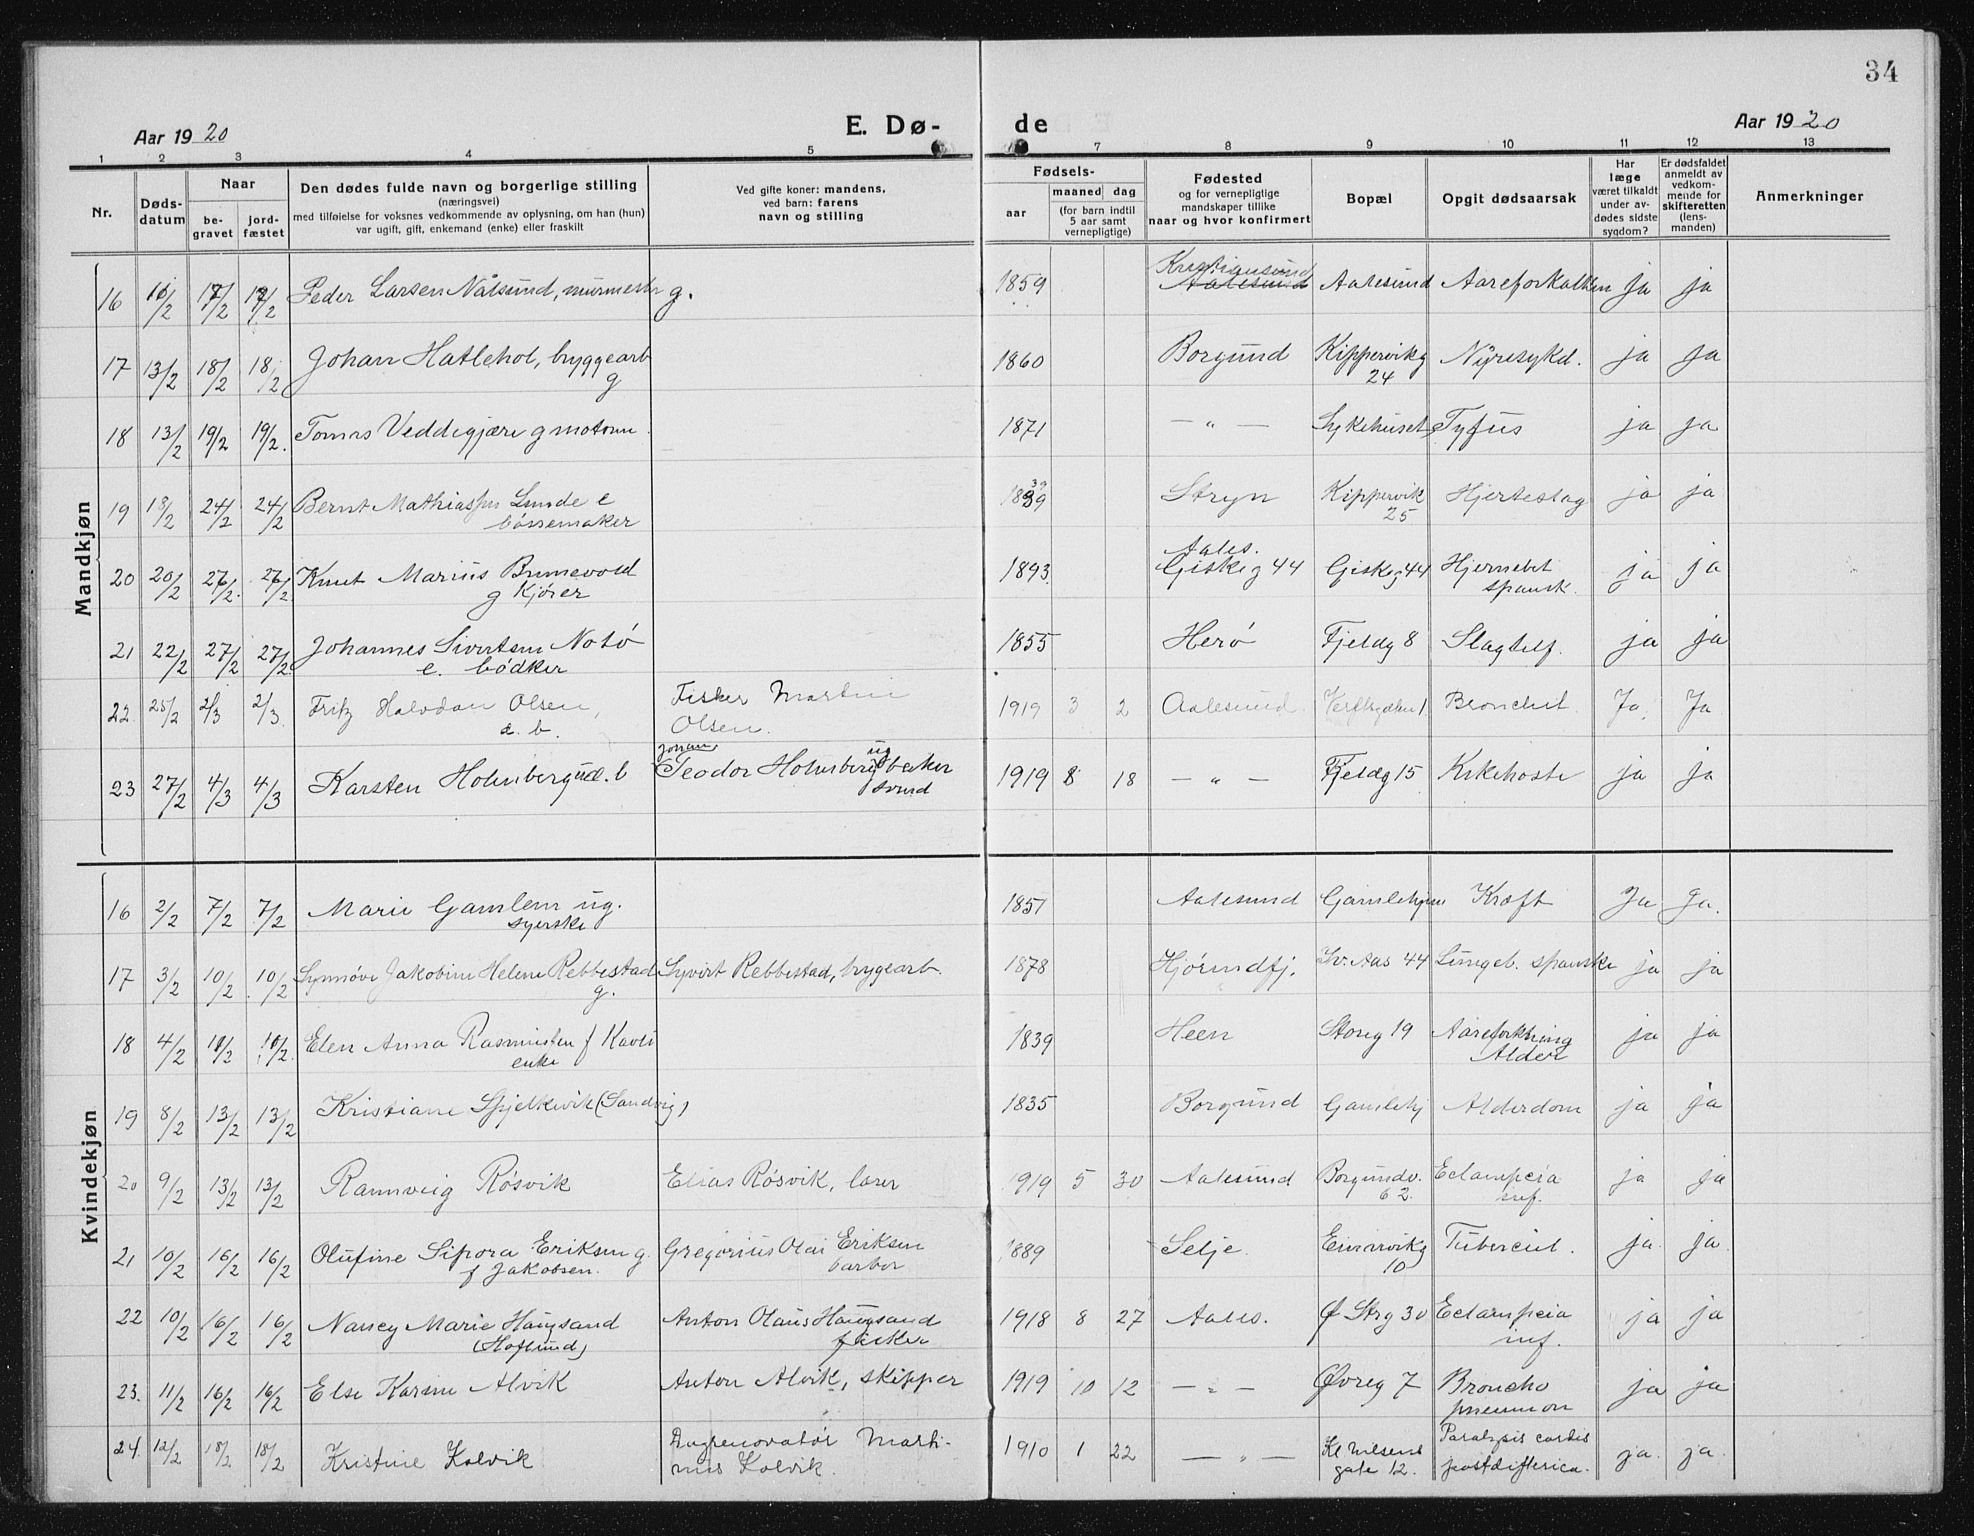 34
Aar 1920 E. Dø- de Aar 1920
1 2 3 4 5 7 8 9 10 11 12 13
Nr. Døds-datum Naar be-gravet jord-fæstet Den dødes fulde navn og borgerlige stilling (næringsvei) med tilføielse for voksnes vedkommende av oplysning, om han (hun) var ugift, gift, enkemand (enke) eller fraskilt Ved gifte koner: mandens, ved barn: farens navn og stilling Fødsels- aar maaned dag (for barn indtil 5 aar samt vernepligtige) Fødested og for vernepligtige mandskaper tillike naar og hvor konfirmert Bopæl Opgit dødsaarsak Har læge været tilkaldt under av-dødes sidste sygdom? Er dødsfaldet anmeldt av vedkom-mende for skifteretten (lens-manden) Anmerkninger
Mandkjøn
Kristiansund
16 10/2 17/2 17/2 Peder Larsen Nålsund, murmester g. 1859 Aalesund Aalesund Aareforkalken ja ja
17 13/2 18/2 18/2 Johan Hatlehol, bryggearb 1860 Borgund Kippervikg Nyresykd. ja ja
g 24
18 13/2 19/2 19/2. Tomas Veddegjære g motorm 1871 — " — Sykehuset Tyfus ja ja
39
19 18/2 24/2 24/2 Bernt Mathiassen Lunde e 1839 Stryn Kippervik Hjerteslag ja ja
bøssemaker 25
Aales.
20 20/2 26/2. 26/2. Knut Marius Brunevold 1893. Giskeg 44 Giskeg 44 Hjernebet ja ja
g Kjører spansk.
21 22/2 27/2 27/2. Johannes Sivertsen Notø 1855 Herø Fjeldg 8 Slagtilf. ja ja
e. bødker
22 25/2 2/3 2/3. Fritz Halvdan Olsen, Fisker Martin 1919 3 2 Aalesund. 1 Bronchit. Ja. Ja
e. b. Olsen.
Johan ug
23 27/2 4/3 4/3 Karsten Holmberg u.e. b Teodor Holmberg bakersvend 1919 8 18 — " — Fjeldg 15 Kikehoste ja ja
Kvindekjøn
16 2/2 7/2 7/2 Marie Gamlem ug. 1851 Aalesund Gamlehjem Kræft Ja Ja.
syerske
17 3/2 10/2 10/2 Synnøve Jakobine Helene Rebbestad Syvert Rebbestad, bryggearb. 1878 Hjørundfj. Sv. Aas 44 Lungeb. spanske ja ja
g.
18 4/2 10/2 10/2. Elen Anna Rasmussen f Kavli 1839 Heen Storg 19 Aareforkkning ja ja
enke Alder
19 8/2 13/2 13/2 Kristiane Spjelkevik (Sandvig) 1835 Borgund Gamlehj Alderdom ja ja
20 9/2 13/2 13/2 Rannveig Røsvik Elias Røsvik, lærer 1919 5 30 Aalesund Borgundv. Eclampcia ja ja
62. inf.
21 10/2 16/2 16/2 Olufine Sipora Eriksen g. Gregorius Olai Eriksen 1889 Selje. Einarvikg Tubercul. ja. ja.
f Jakobsen. barber 10
22 10/2 16/2 16/2 Nancy Marie Haugsand Anton Olaus Haugsand 1918 8 27 Aales. Ø Strg 30 Eclampcia ja ja
(Hoflund) fisker inf.
23. 11/2 16/2 16/2 Else Karin Alvik Anton Alvik, skipper 1919 10 12 — " — Øvreg 7 Broncho ja ja
pneumon
24. 12/2 18/2 18/2 Kristine Kolvik Dagrenovatør Marti- 1910 1 22 — " — Kl. Nilsens Paralysis cordis ja. ja.
nus Kolvik. gate 12. postdifterica.